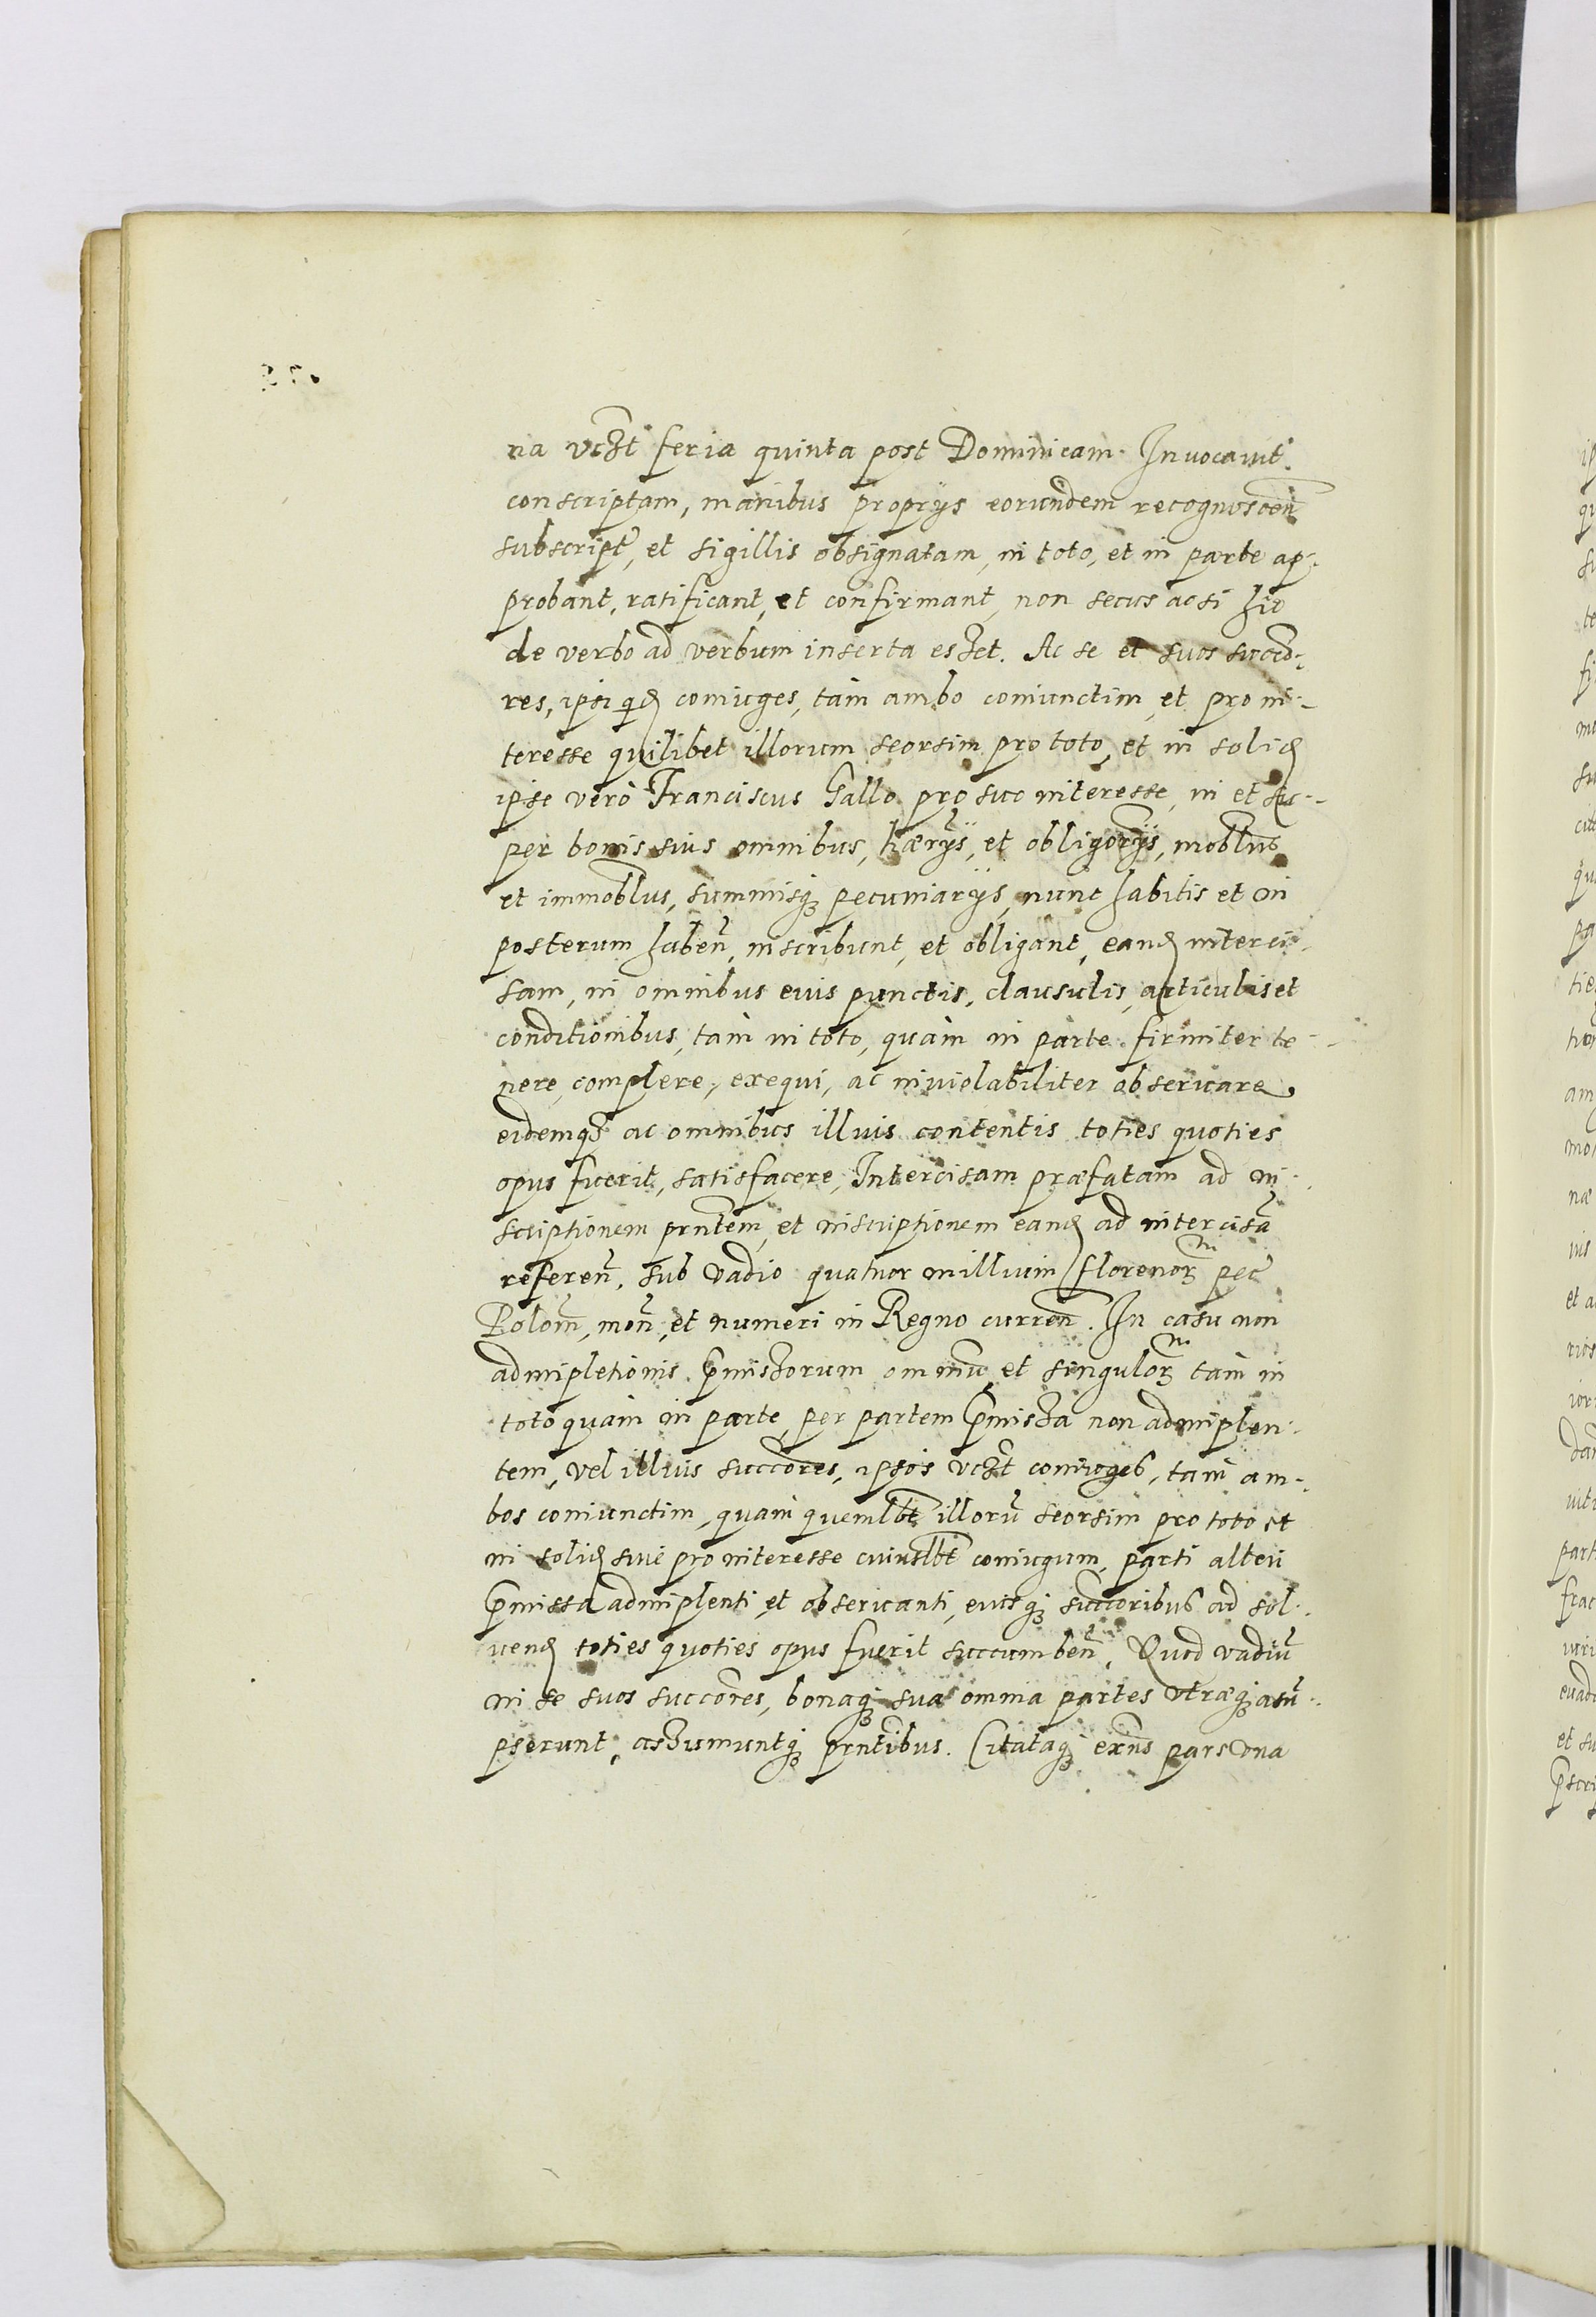 na vczt feria quinta post Dominicam Invocavit
conscriptam, manibus proprijs eorundem recognoscen̄
subscript, et sigillis obsignatam, in toto, et in parte ap-
probant, ratificant, et confirmant, non secus ac si hic
de verbo ad verbum inserta esset. Ac se et suos succo-
res, ipsi qid coniuges, tam ambo coniunctim, et pro in-
teresse quilibet illorum seorsim pro toto, et in solid
ipse vero Franciscus Gallo pro suo interesse, in et su-
per bonis suis omnibus, hærijs, et obligorijs, moblbus
et immoblbus, summisq pecuniarijs, nunc habitis et in
posterum haben̄, inscribunt, et obligant, eand interci-
sam, in omnibus eius punctis, clausulis, articulis et
conditionibus, tam in toto, quam in parte firmiter te-
nere, complere, exequi, ac inviolabiliter observare
eidemqȝ ac omnibus illius contentis toties quoties
opus fuerit, satisfacere, Intercisam præfatam ad in-
scriptionem prntem, et inscriptionem eand ad intercisā
referen̄, sub vadio quatuor millium florenor pec
Polon̄, mon̄, et numeri in Regno curren̄. In casu non
adimpletionis pmissorum omniū et singulor tam in
toto quam in parte, per partem pmissa non adimplen-
tem, vel illius succores, ipsos vczt coniuges, tam am-
bos coniunctim, quam quemlbt illorū seorsim pro toto et
in solid sive pro interesse cuiuslbt coniugum, parti alteri
pmissa adimplenti et observanti, eiusqȝ succoribus ad sol-
vend toties quoties opus fuerit succumben̄, Quod vadiū
in se suos succores, bonaqȝ sua omnia partes vtræqȝ asū-
pserunt, assumuntqȝ prntibus. Citataqȝ exn̄s pars vna